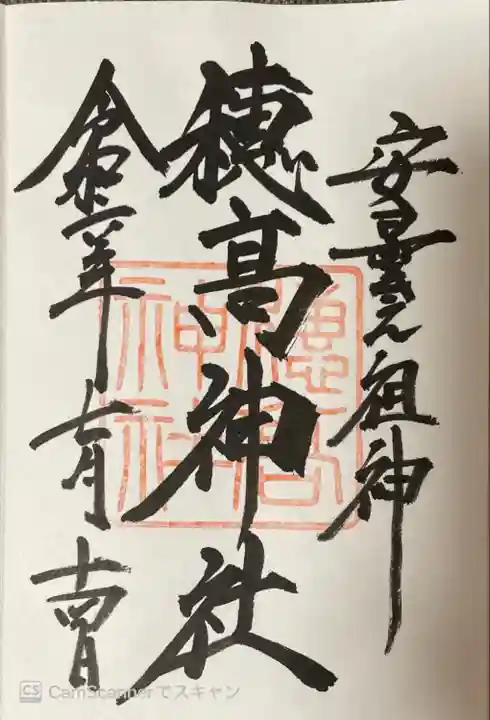 安曇之祖神
穂高神社
令和二年 七月 十四日
穂高
神社
CS CamScannerでスキャン